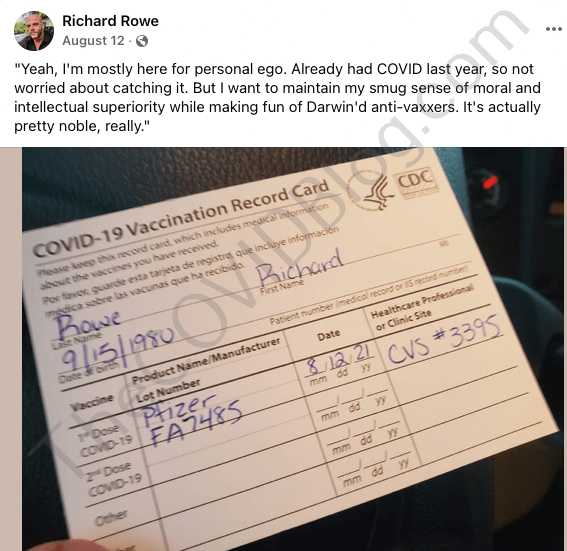 Richard Rowe
August 12 ·
"Yeah, I'm mostly here for personal ego. Already had COVID last year, so not
worried about catching it. But I want to maintain my smug sense of moral and
intellectual superiority while making fun of Darwin'd anti-vaxxers. It's actually
pretty noble, really."
TheCOVIDBlog.com
COVID-19 Vaccination Record Card
CDC
Please keep this record card, which includes medical information
about the vaccines you have received.
Por favor, guarde esta tarjeta de registro, que incluye información
médica sobre las vacunas que ha recibido.
Rowe Richard
Last Name First Name MI
9/15/1980
Date of birth Patient number (medical record or IIS record number)
Vaccine Product Name/Manufacturer Date Healthcare Professional
Lot Number or Clinic Site
1st Dose Pfizer 8/12/21 CVS #3395
COVID-19 FA7485 mm dd yy
2nd Dose
COVID-19 mm dd yy
Other mm dd yy
mm dd yy